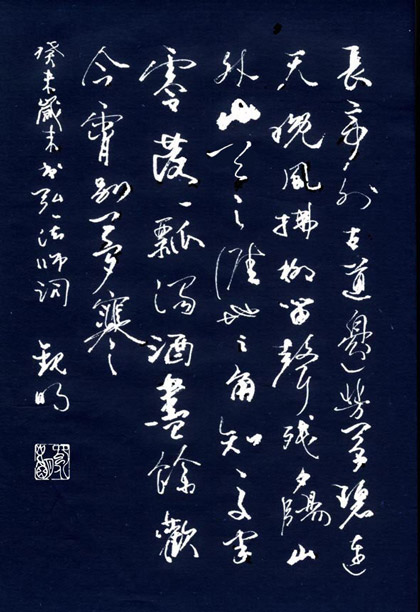 長亭外古道邊芳草碧連
天晚風拂柳笛聲殘夕陽山
外山天之涯地之角知交半
零落一瓢濁酒盡餘歡
今宵別夢寒
癸未歲末書弘一法師詞 觀明